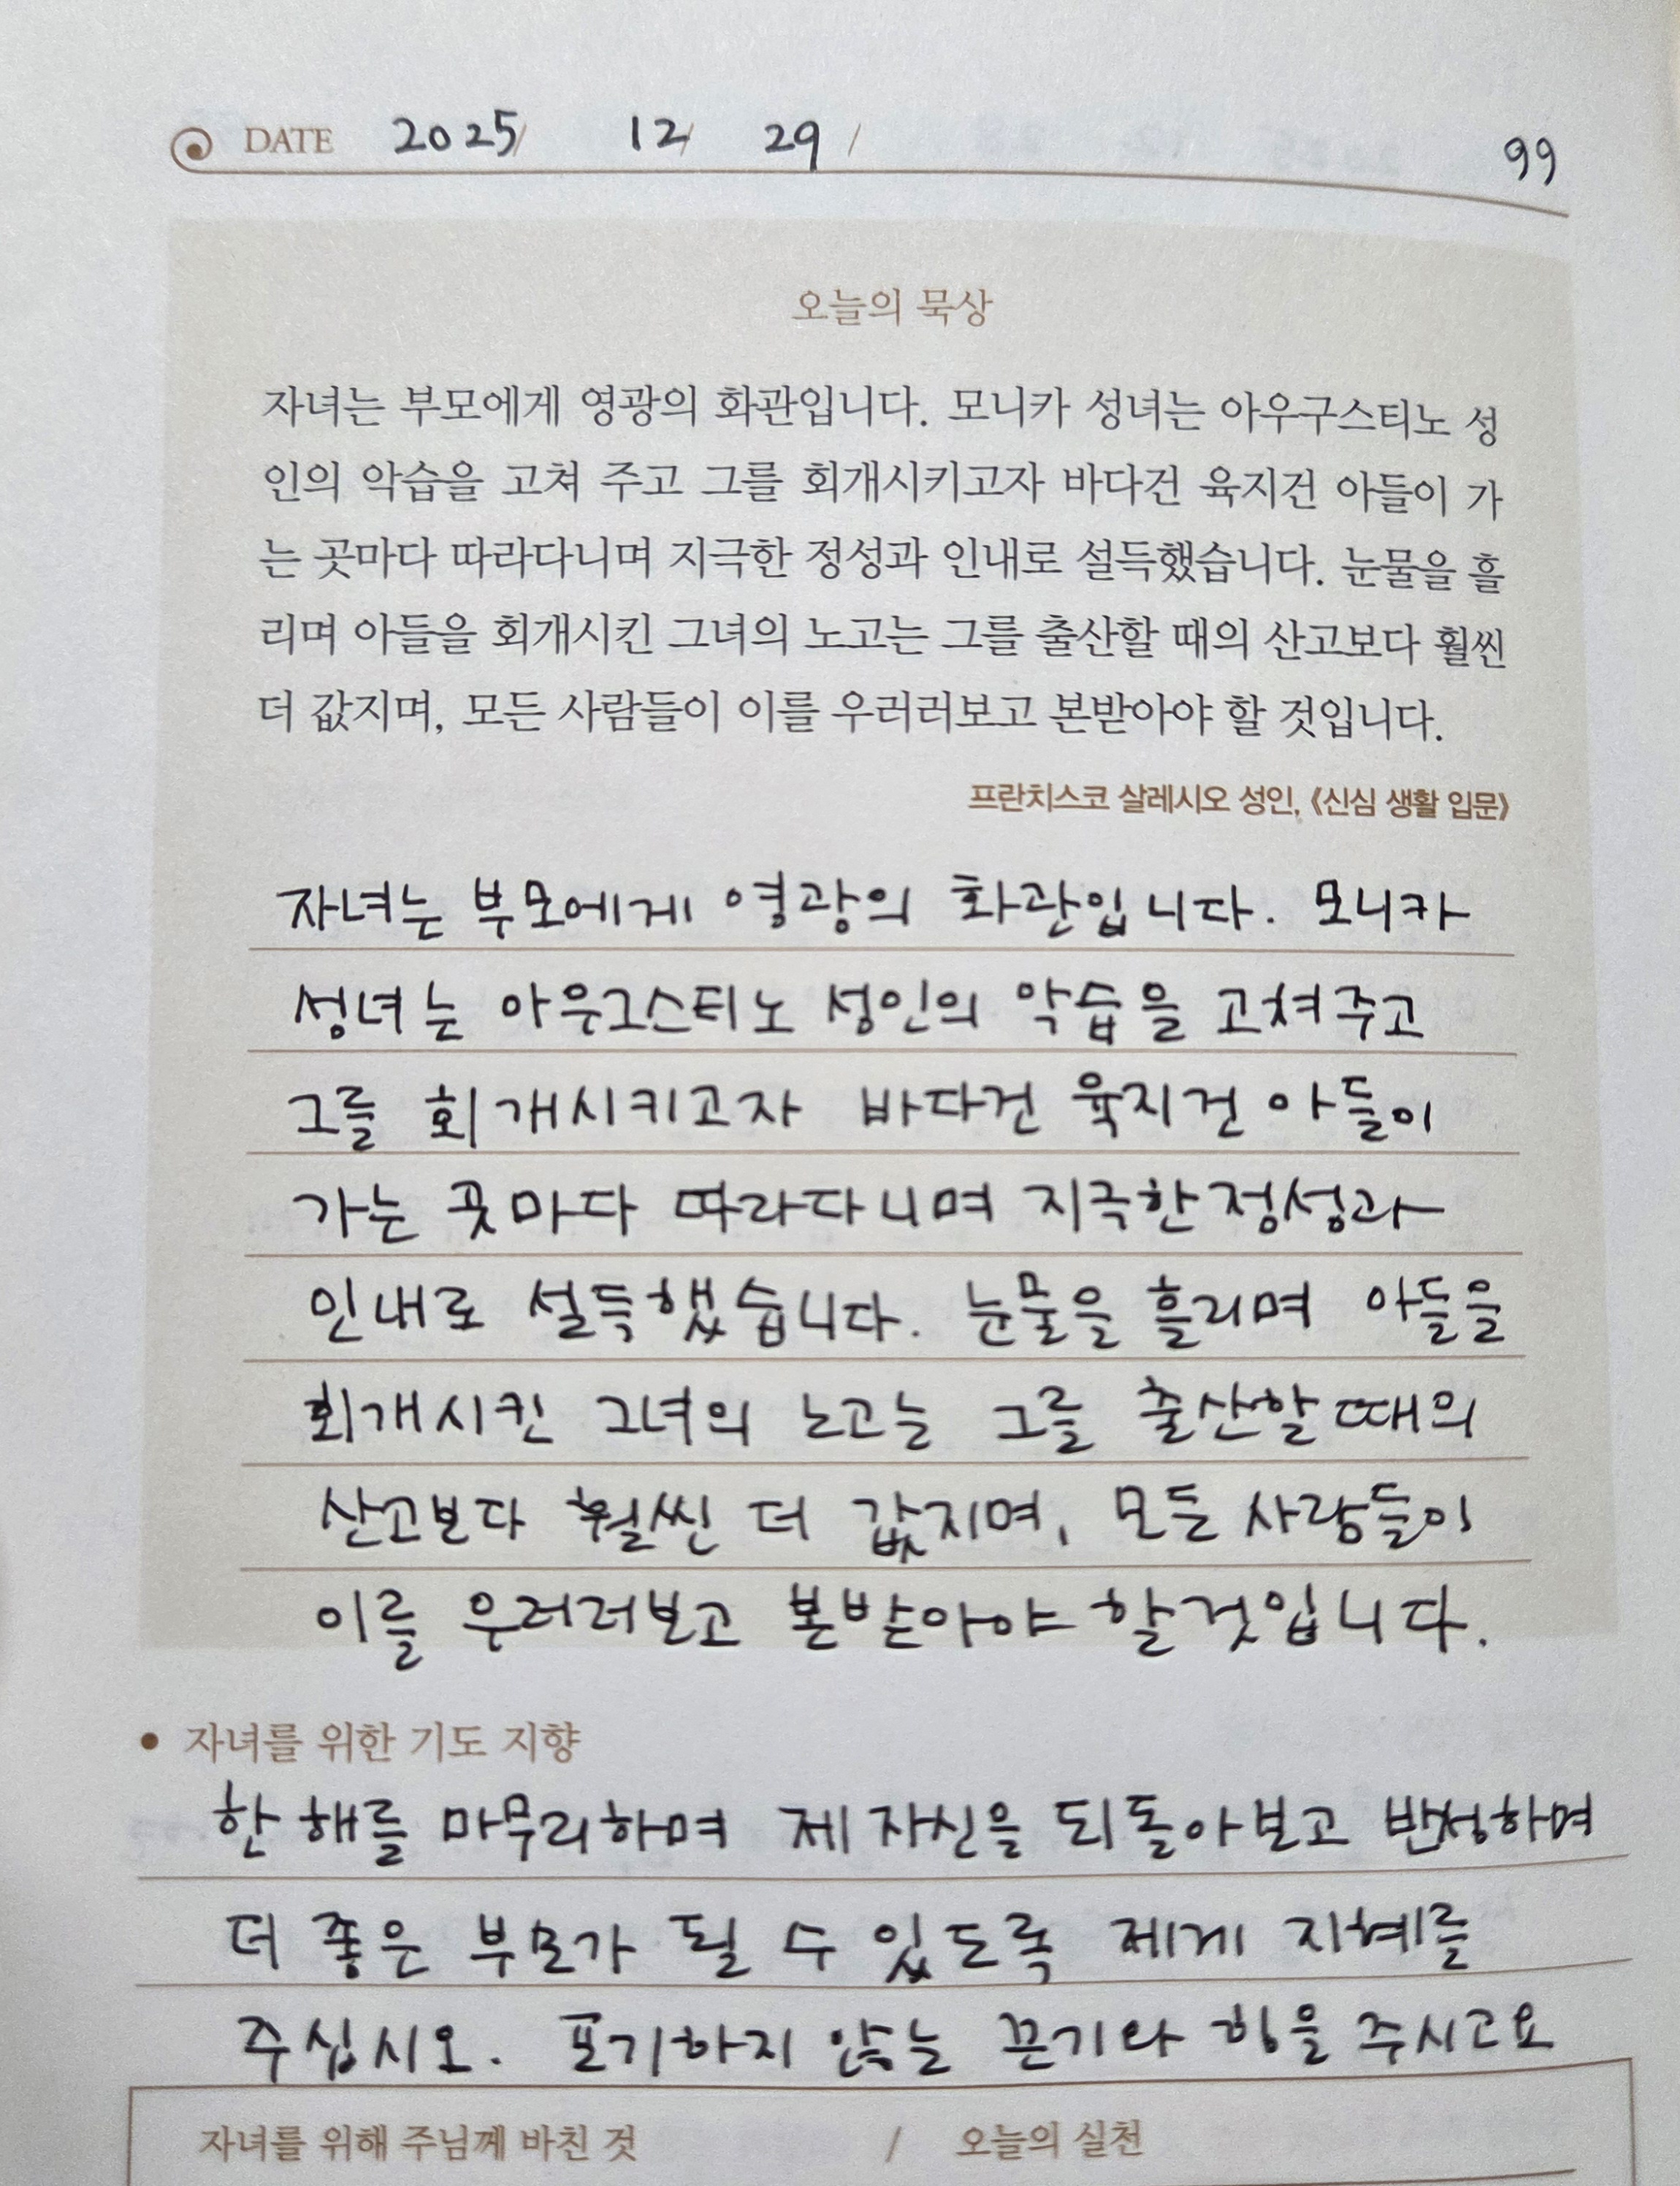 DATE 2025/ 12/ 29/ 99
오늘의 묵상
자녀는 부모에게 영광의 화관입니다. 모니카 성녀는 아우구스티노 성
인의 악습을 고쳐 주고 그를 회개시키고자 바다건 육지건 아들이 가
는 곳마다 따라다니며 지극한 정성과 인내로 설득했습니다. 눈물을 흘
리며 아들을 회개시킨 그녀의 노고는 그를 출산할 때의 산고보다 훨씬
더 값지며, 모든 사람들이 이를 우러러보고 본받아야 할 것입니다.
프란치스코 살레시오 성인, 《신심 생활 입문》
자녀는 부모에게 영광의 화관입니다. 모니카
성녀는 아우구스티노 성인의 악습을 고쳐주고
그를 회개시키고자 바다건 육지건 아들이
가는 곳마다 따라다니며 지극한 정성과
인내로 설득했습니다. 눈물을 흘리며 아들을
회개시킨 그녀의 노고는 그를 출산할 때의
산고보다 훨씬 더 값지며, 모든 사람들이
이를 우러러보고 본받아야 할것입니다.
• 자녀를 위한 기도 지향
한 해를 마무리하며 제 자신을 되돌아보고 반성하며
더 좋은 부모가 될 수 있도록 제게 지혜를
주십시오. 포기하지 않는 끈기와 힘을 주시고요
자녀를 위해 주님께 바친 것 / 오늘의 실천